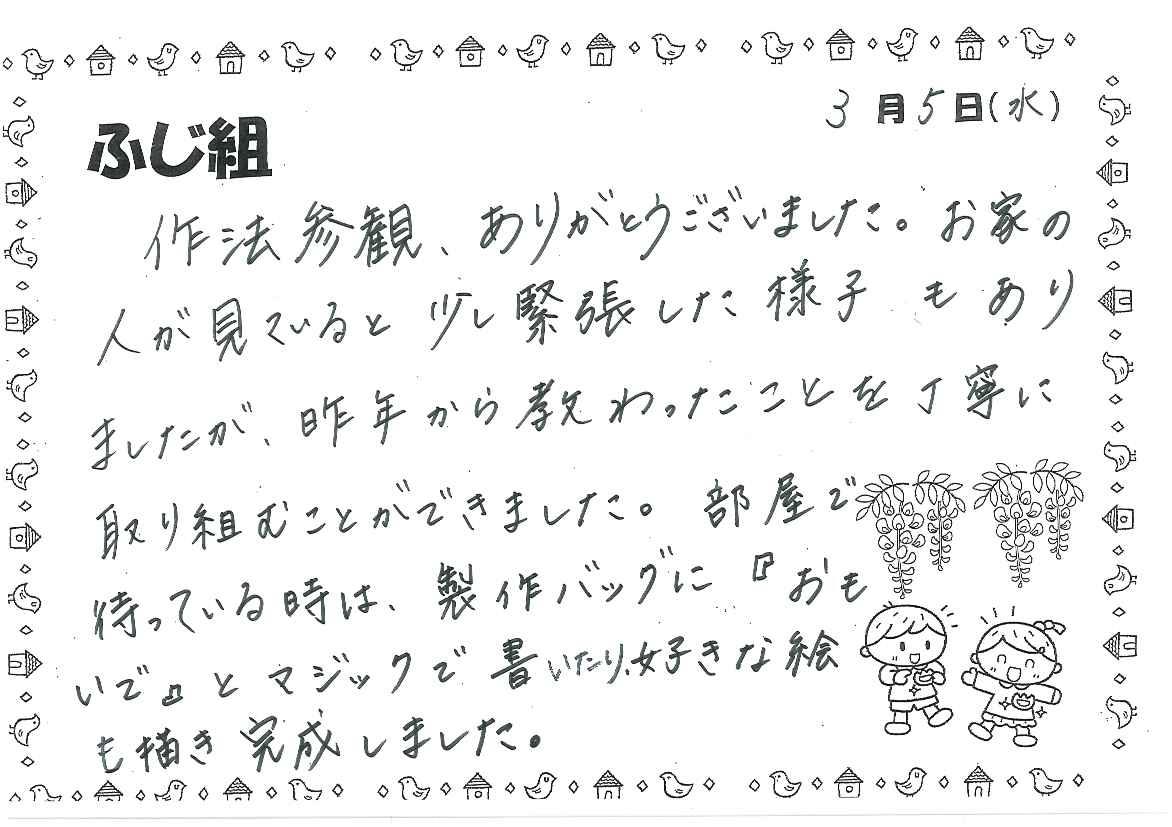 3月5日(水)
ふじ組
作法参観、ありがとうございました。お家の
人が見ていると少し緊張した様子もあり
ましたが、昨年から教わったことを丁寧に
取り組むことができました。部屋で
待っている時は、製作バッグに『おも
いで』とマジックで書いたり、好きな絵
も描き完成しました。